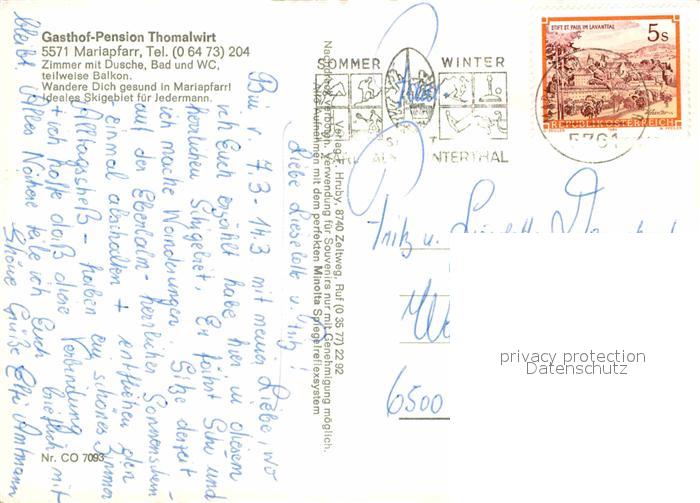 Gasthof-Pension Thomalwirt
5571 Mariapfarr, Tel. (0 64 73) 204
Zimmer mit Dusche, Bad und WC,
teilweise Balkon.
Wandere Dich gesund in Mariapfarr!
Ideales Skigebiet für Jedermann.
Liebe Lieselotte u. Fritz!
Bin v. 7.3-14.3 mit meiner Liebe, wo
ich Euch erzählt habe hier in diesem
herrlichen Skigebiet. Er fährt Ski und
ich mache Wanderungen. Sitze derzeit -
auf der Eberlalm - herrlicher Sonnenschein
einmal abschalten + entfliehen den
Alltagsstreß - haben ein schönes Zimmer
+ ich hoffe daß diese Verbindung
bleibt. Alles Nähere teile ich Euch brieflich mit
Schöne Grüße Elfi Antmann
Nr. CO 7093
Verlag F. Hruby, 8740 Zeltweg, Ruf (0 35 77) 22 92
Nachdruck verboten. Verwendung für Souvenirs nur mit Genehmigung möglich.
Alle Aufnahmen mit dem perfekten Minolta Spiegelreflexsystem
SOMMER WINTER
5761
STIFT ST. PAUL IM LAVANTTAL
5 S
REPUBLIK ÖSTERREICH
Fritz u.
6500
privacy protection
Datenschutz